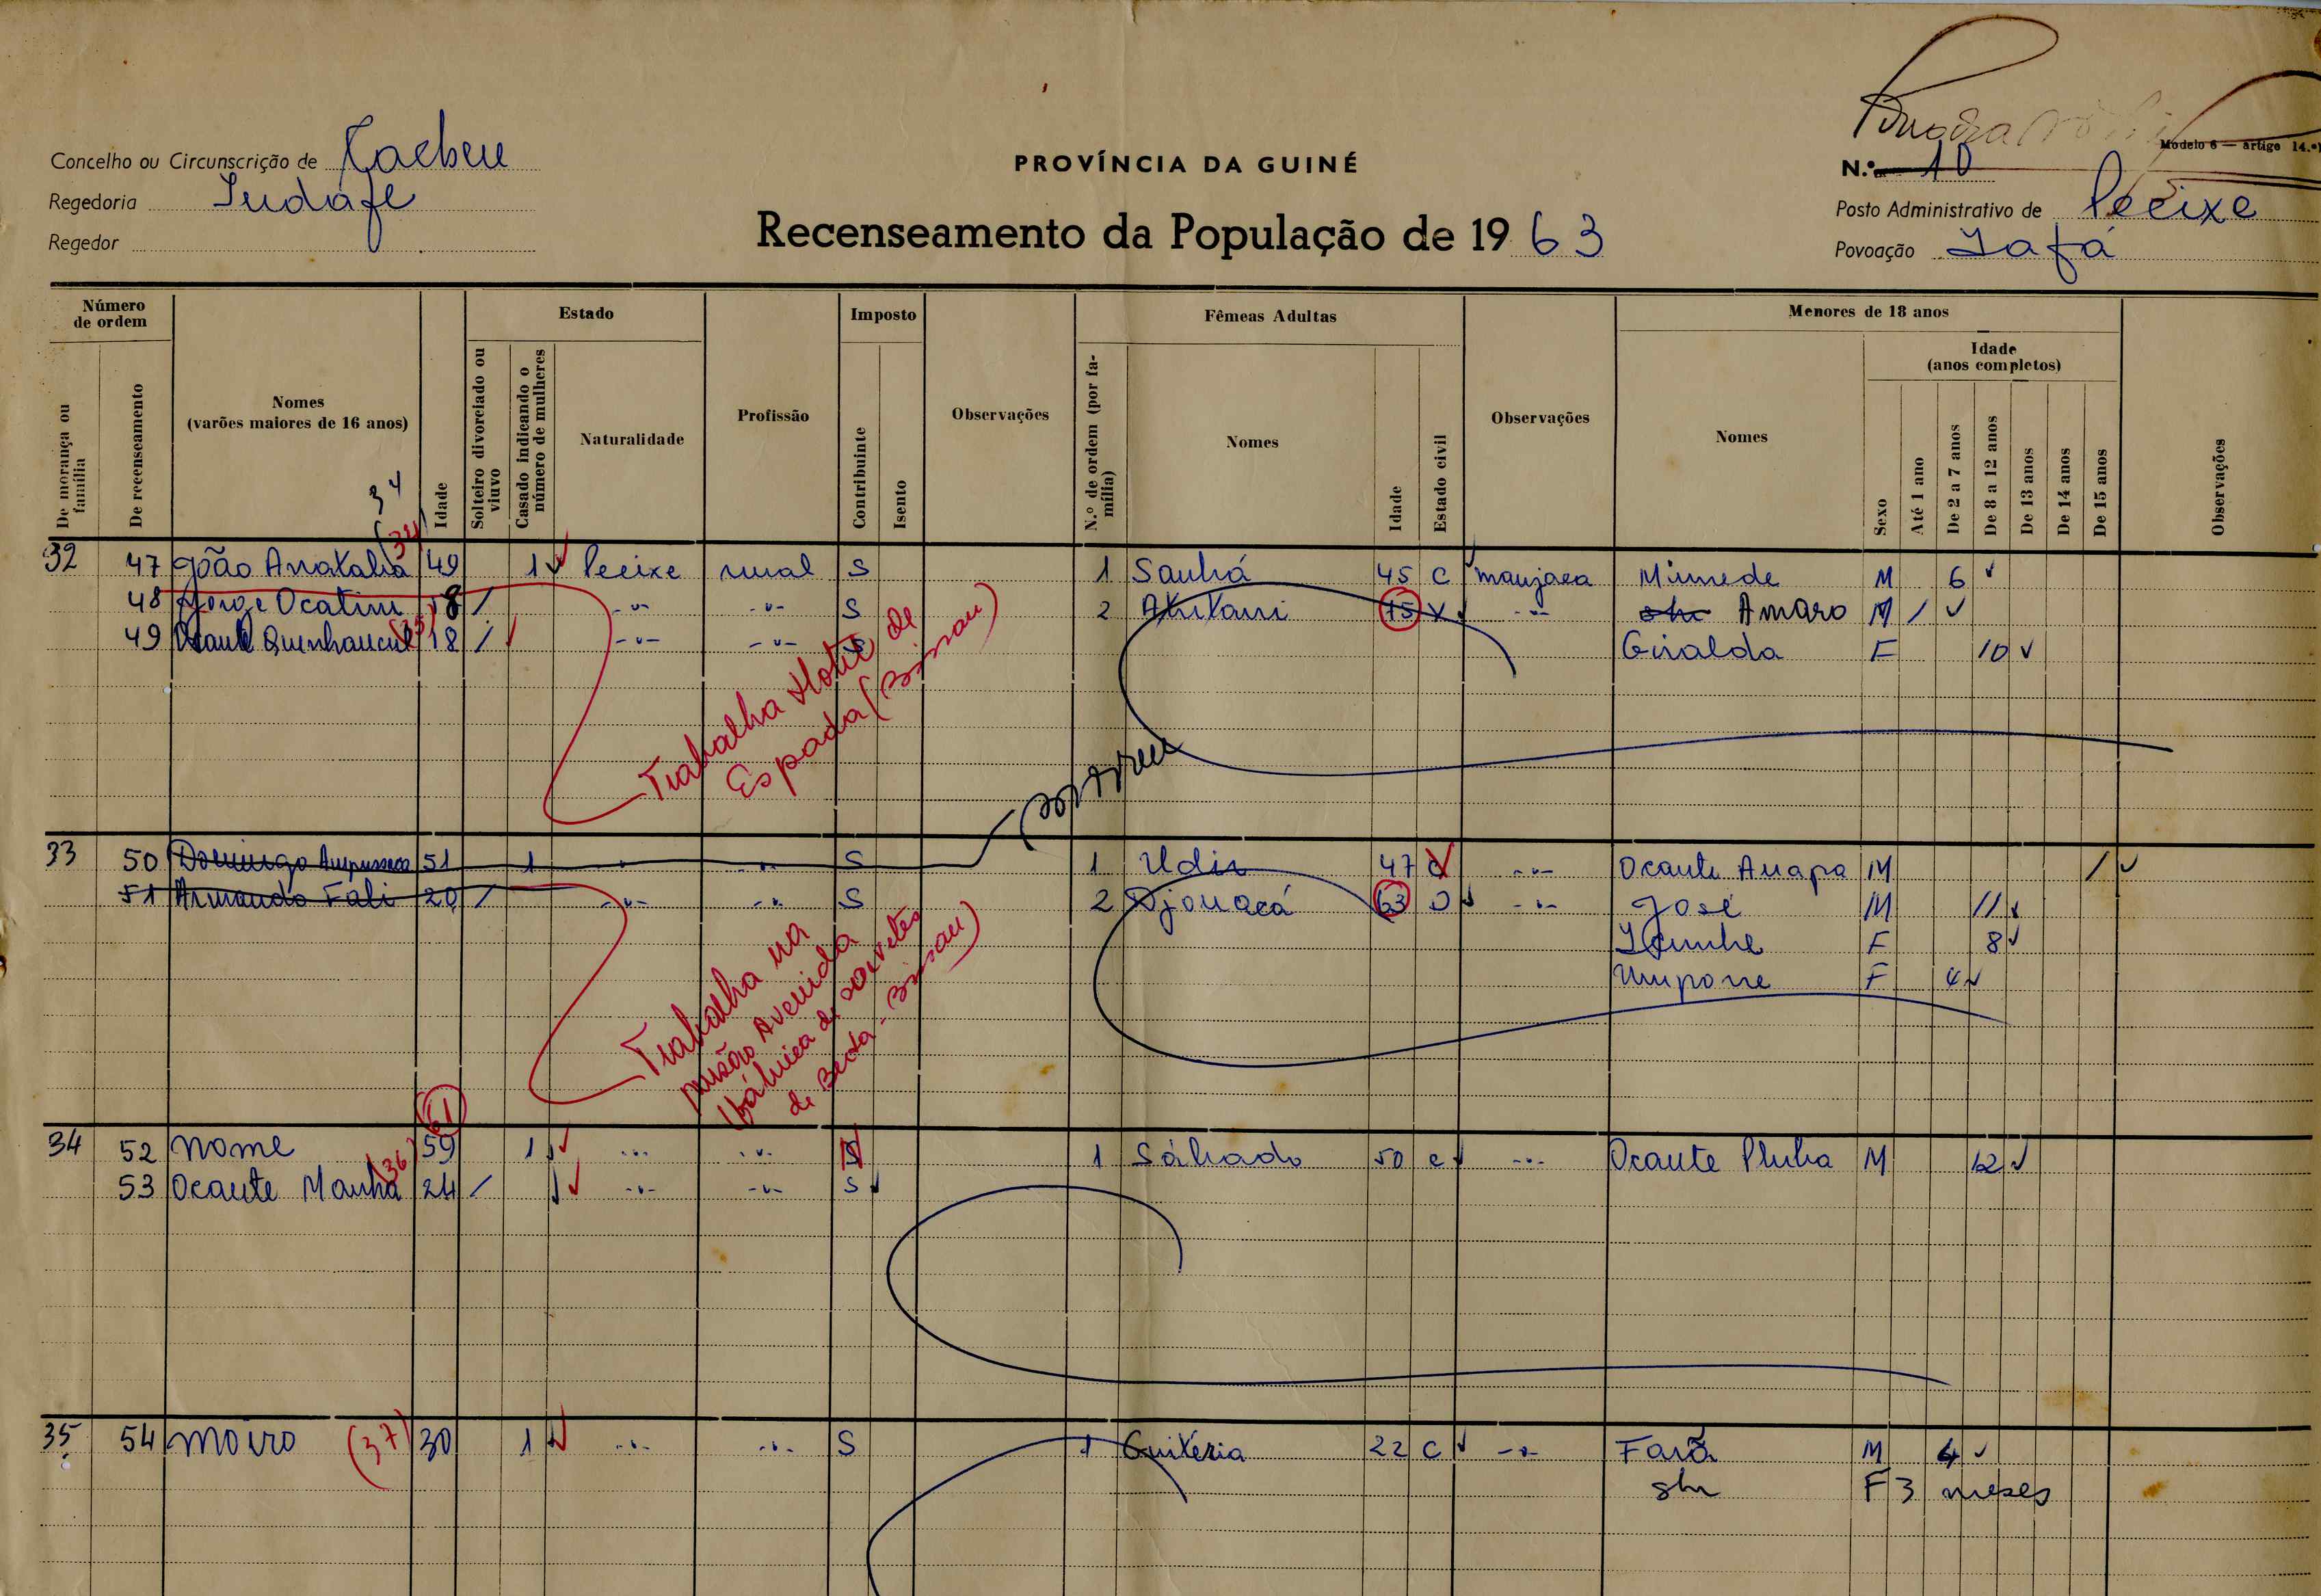 Concelho ou Circunscrição de Cacheu
PROVÍNCIA DA GUINÉ
Modelo 6 — artigo 14.º
N.º 10
Regedoria
Posto Administrativo de Pecixe
Regedor
Recenseamento da População de 19 63
Povoação
Número de ordem
Estado
Imposto
Fêmeas Adultas
Menores de 18 anos
De morança ou família
De recenseamento
Nomes
(varões maiores de 16 anos)
Idade
Solteiro divorciado ou viuvo
Casado indicando o número de mulheres
Naturalidade
Profissão
Contribuinte
Isento
Observações
N.º de ordem (por família)
Nomes
Idade
Estado civil
Observações
Nomes
Sexo
Idade
(anos completos)
Até 1 ano
De 2 a 7 anos
De 8 a 12 anos
De 13 anos
De 14 anos
De 15 anos
Observações
34
(34)
32 47 João 49 1 Pecixe rural S 1 Sanhá 45 C manjaca M 6
48 Jorge 18 / -"- -"- S 2 75 V -"- Amaro M /
49 18 / -"- -"- S Giralda F 10
Trabalha de
Espada (Bissau)
33 50 Domingo 51 1 " -"- S 1 Udir 47 -"- Ocante Anapa M /
51 Armando Fali 20 / -"- -"- S 2 63 -"- José M 11
F 8
F 4
Trabalha na
Avenida
de sorvetes
Bissau)
(61)
34 52 Nome 59 1 -"- -"- S 1 Sábado 50 c -"- Ocante M 12
53 Ocante (36) 24 / -"- -"- S
35 54 Moiro (37) 30 1 -"- -"- S 1 Guitéria 22 C -"- Fará M 4
F 3 meses